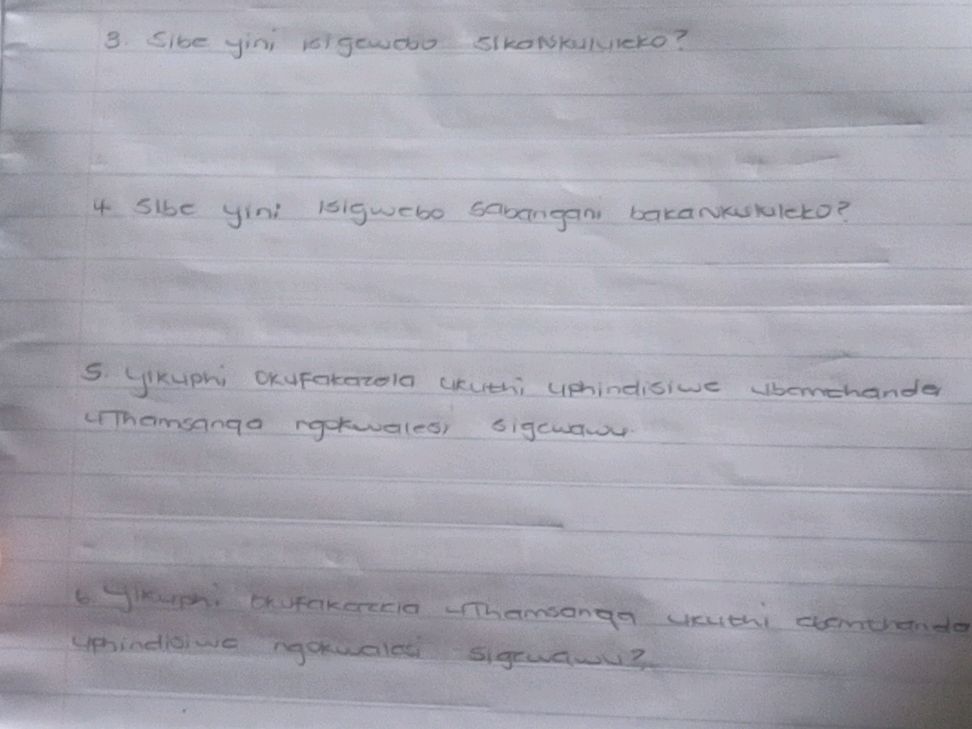 3. Sibe yini isigcwebo sikaNkululeko?
4 Sibe yini isigwebo sabangani bakaNkululeko?
5. Yikuphi okufakazela ukuthi uphindisiwe ubemthanda
uThamsanqa ngokwalesi sigcwawu.
6 Yikuphi okufakazela uThamsanqa ukuthi ubemthanda
uphindisiwe ngokwalesi sigcwawu?